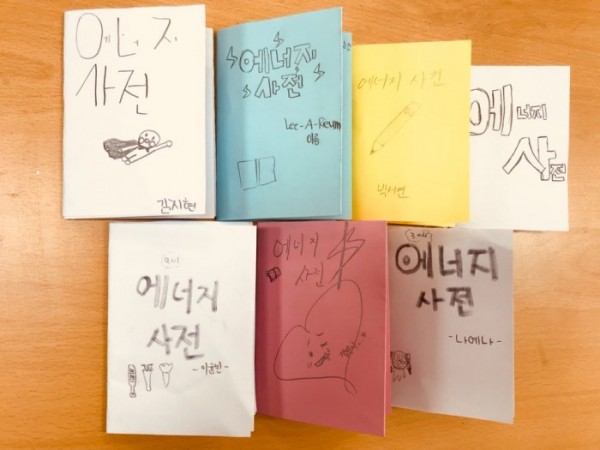 에너지
사전
김지현
에너지
사전
Lee-A-Reum
아름
에너지 사전
에너지
사전
에너지
사전
에너지
사전
에너지
사전
-나예나-